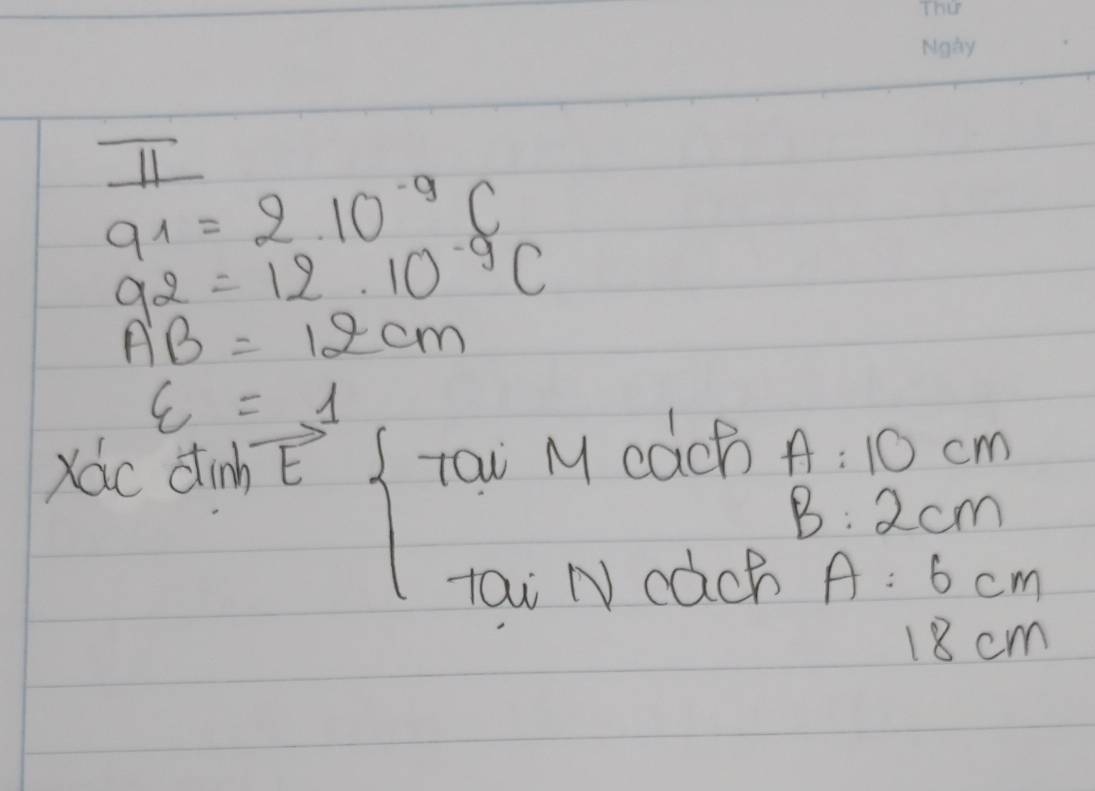 Thứ
Ngày
II
q1 = 2.10⁻⁹ C
q2 = 12.10⁻⁹ C
AB = 12 cm
ε = 1
Xác định E⃗ { Tại M cách A : 10 cm
B : 2 cm
Tại N cách A : 6 cm
18 cm